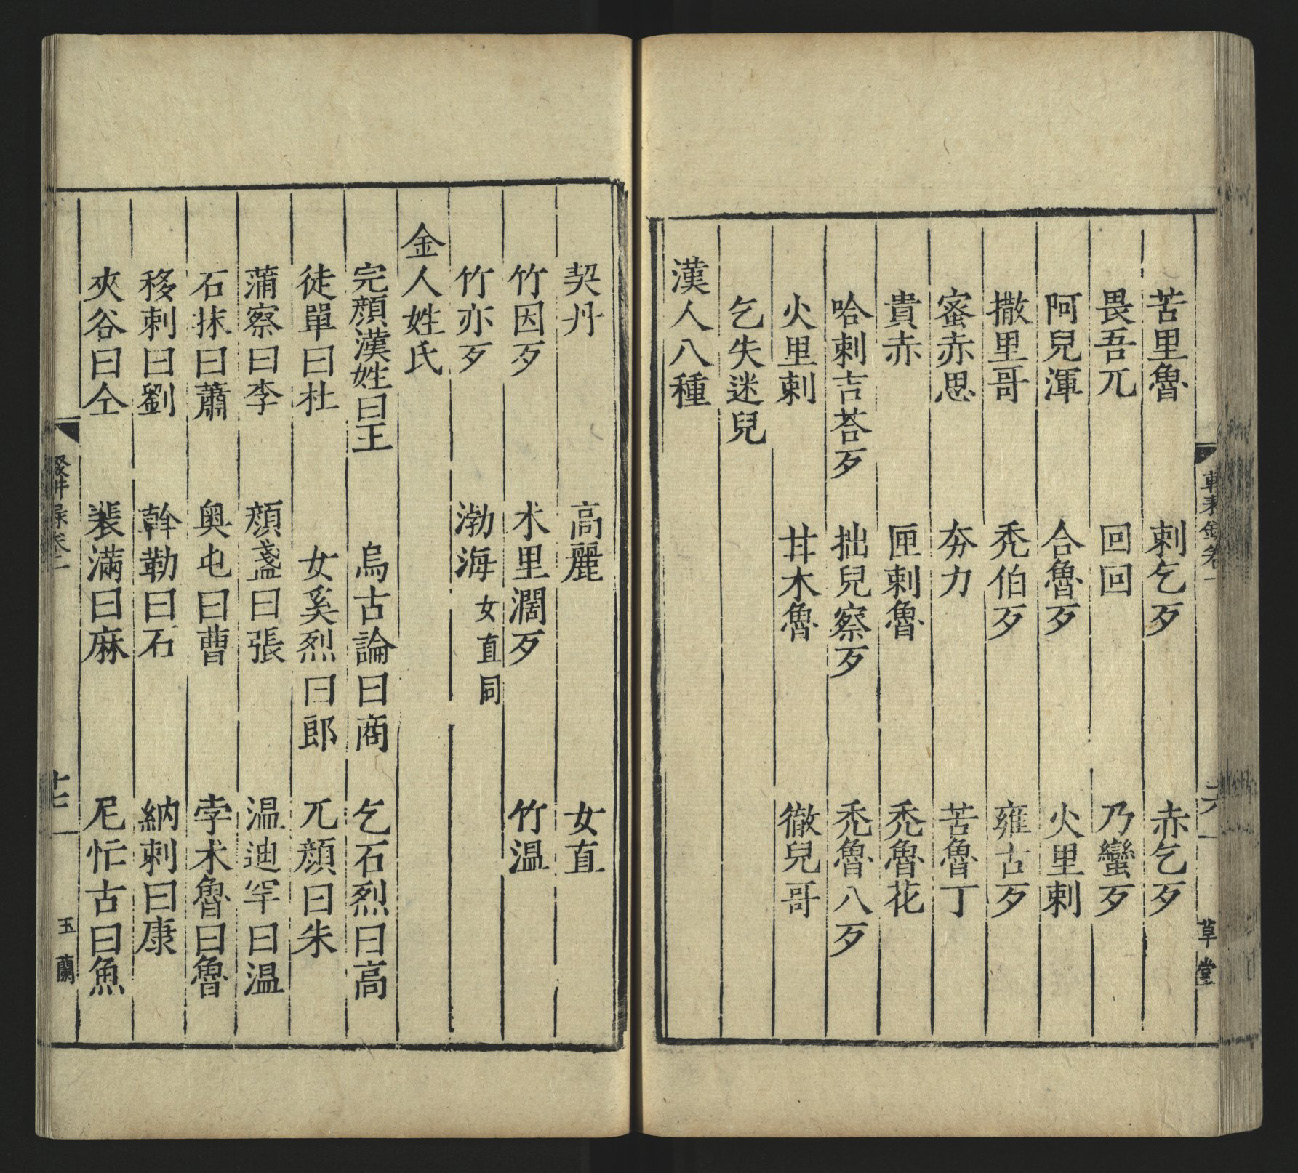 苦里魯 剌乞歹 赤乞歹
畏吾兀 回回 乃蠻歹
阿兒渾 合魯歹 火里剌
撒里哥 禿伯歹 雍古歹
蜜赤思 夯力 苦魯丁
貴赤 匣剌魯 禿魯花
哈剌吉荅歹 拙兒察歹 禿魯八歹
火里剌 甘木魯 徹兒哥
乞失迷兒
漢人八種
契丹 高麗 女直
竹因歹 朮里濶歹 竹溫
竹亦歹 渤海 女直同
金人姓氏
完顏漢姓曰王 烏古論曰商 乞石烈曰高
徒單曰杜 女奚烈曰郎 兀顏曰朱
蒲察曰李 顏盞曰張 温迪罕曰温
石抹曰蕭 奧屯曰曹 孛朮魯曰魯
移剌曰劉 斡勒曰石 納剌曰康
夾谷曰仝 裴滿曰麻 尼忙古曰魚
十七
玉蘭
草堂